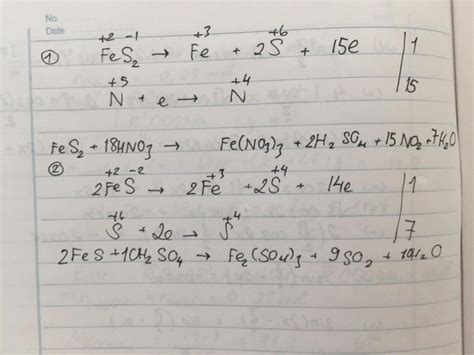 No.
Date
+2 -1 +3 +6
① FeS₂ → Fe + 2S + 15e | 1
+5 +4
N + e → N | 15
FeS₂ + 18HNO₃ → Fe(NO₃)₃ + 2H₂SO₄ + 15NO₂ + 7H₂O
②
+2 -2 +3 +4
2FeS → 2Fe + 2S + 14e | 1
+6 +4
S + 2e → S | 7
2FeS + 10H₂SO₄ → Fe₂(SO₄)₃ + 9SO₂ + H₂O